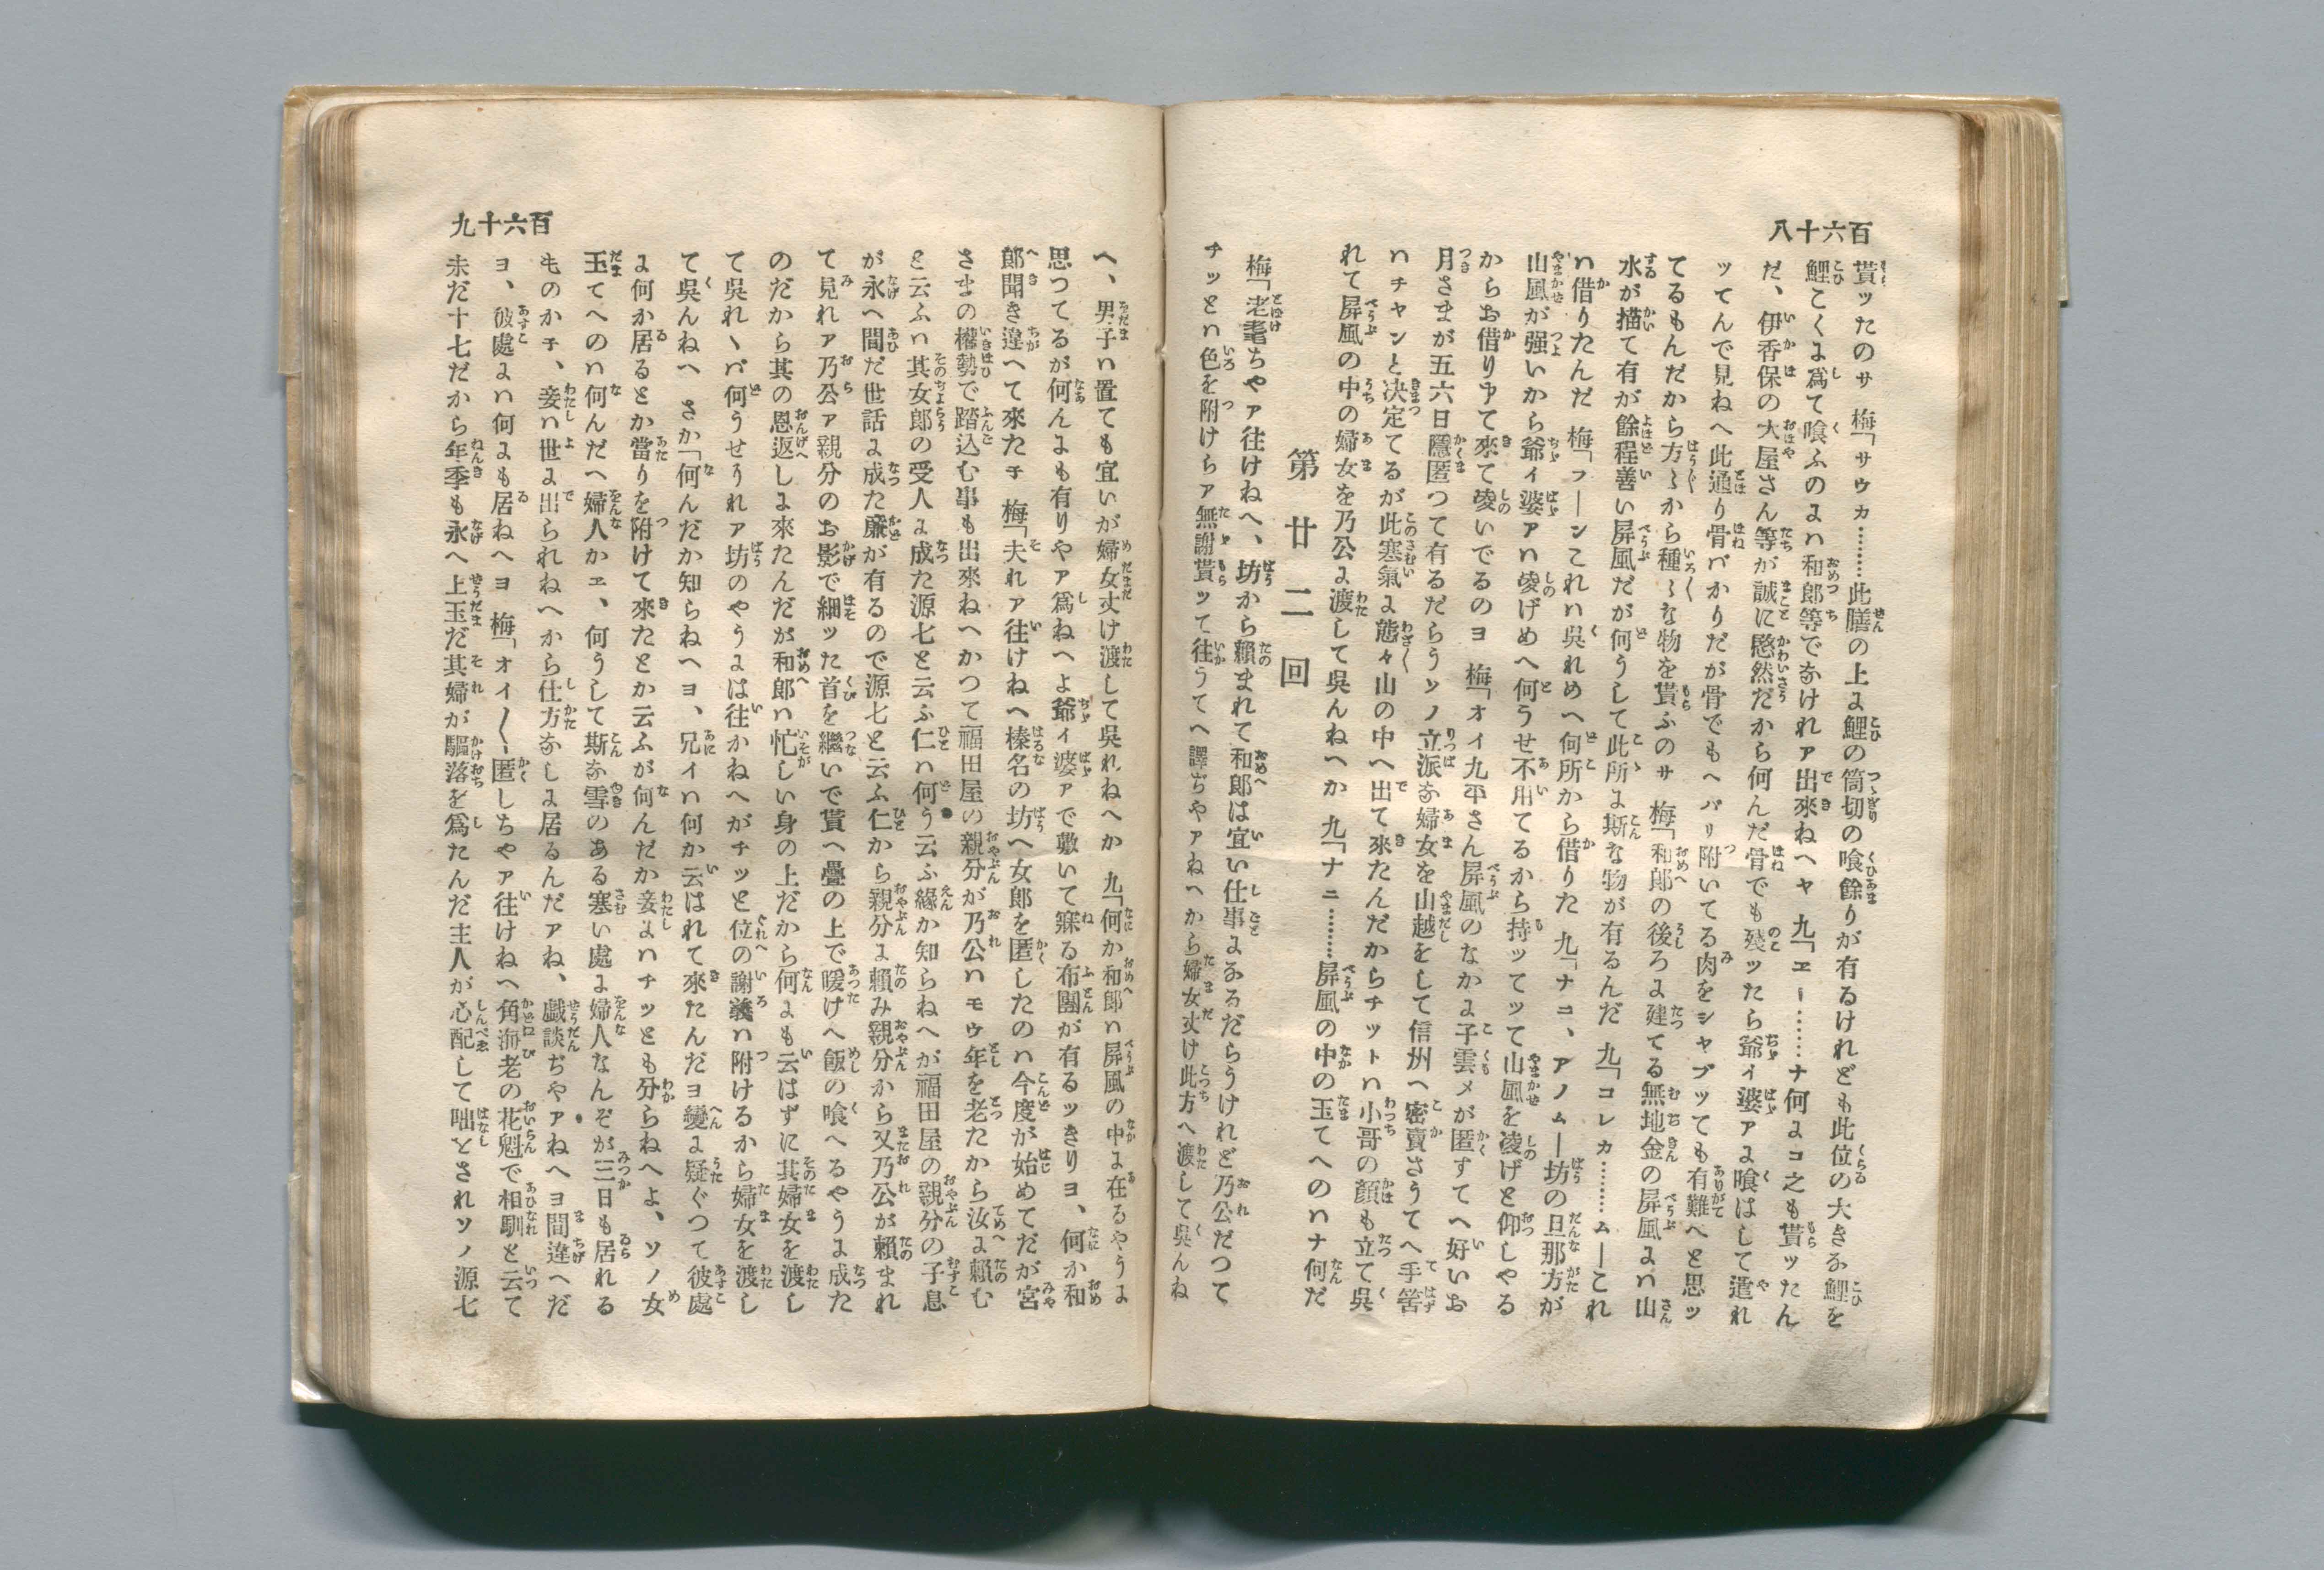 百六十八
貰ッたのサ 梅「サウカ………此膳の上よ鯉の筒切の喰餘りが有るけれども此位の大きな鯉を
鯉こくよ爲て喰ふのよハ和郎等でなけれア出來ねヘヤ 九「エー……ナ何よコ之も貰ッたん
だ、伊香保の大屋さん等が誠に愍然だから何んだ骨でも殘ッたら爺イ婆アよ喰はして遣れ
ッてんで見ねへ此通り骨バかりだが骨でもヘバリ附いてる肉をシヤブッても有難へと思ッ
てるもんだから方〻から種〻な物を貰ふのサ 梅「和郎の後ろよ建てる無地金の屏風よハ山
水が描て有が餘程善い屏風だが何うして此所よ斯んな物が有るんだ 九「コレカ………ムーこれ
ハ借りたんだ 梅「フーンこれハ呉れめへ何所から借りた 九「ナニ、アノムー坊の旦那方が
山風が强いから爺イ婆アハ凌げめへ何うせ不用てるから持ッてッて山風を凌げと仰しやる
からお借り申て來て凌いでるのヨ 梅「オイ九平さん屏風のなかよ子雲メが匿すてへ好いお
月さまが五六日隱匿つて有るだらうソノ立派な婦女を山越をして信州へ密賣さうてへ手筈
ハチヤンと决定てるが此寒氣よ態々山の中へ出て來たんだからチットハ小哥の顏も立て呉
れて屏風の中の婦女を乃公よ渡して呉んねへか 九「ナニ………屏風の中の玉てへのハナ何だ
第廿二回
梅「老耄ちやア往けねへ、坊から賴まれて和郎は宜い仕事よなるだらうけれど乃公だつて
チッとハ色を附けらア無謝貰ッて往うてへ譯ぢやアねへから婦女丈け此方へ渡して呉んね
百六十九
ヘ、男子ハ置ても宜いが婦女丈け渡して呉れねへか 九「何か和郎ハ屏風の中よ在るやうよ
思つてるが何んよも有りやア爲ねへよ爺イ婆アで敷いて寐る布團が有るッきりヨ、何か和
郎聞き違へて來たチ 梅「夫れア往けねへ榛名の坊へ女郎を匿したのハ今度が始めてだが宮
さまの權勢で踏込む事も出來ねへかつて福田屋の親分が乃公ハモウ年を老たから汝よ賴む
と云ふハ其女郎の受人よ成た源七と云ふ仁ハ何う云ふ緣か知らねへが福田屋の親分の子息
が永へ間だ世話よ成た廉が有るので源七と云ふ仁から親分よ賴み親分から又乃公が賴まれ
て見れア乃公ア親分のお影で細ッた首を繼いで貰へ疊の上で暖けへ飯の喰へるやうよ成た
のだから其の恩返しよ來たんだが和郎ハ忙しい身の上だから何よも云はずに其婦女を渡し
て呉れヽバ何うせうれア坊のやうよは往かねへがチッと位の謝義ハ附けるから婦女を渡し
て呉んねへ さか「何んだか知らねヘヨ、兄イハ何か云はれて來たんだヨ變よ疑ぐつて彼處
よ何か居るとか當りを附けて來たとか云ふが何んだか妾よハチッとも分らねへよ、ソノ女
玉てへのハ何んだへ婦人かエ、何うして斯な雪のある寒い處よ婦人なんぞが三日も居れる
ものかチ、妾ハ世よ出られねへから仕方なしよ居るんだアね、戯談ぢやアねヘヨ間違へだ
ヨ、彼處よハ何よも居ねヘヨ 梅「オイ〳〵匿しちやア往けねへ角海老の花魁で相馴と云て
未だ十七だから年季も永へ上玉だ其婦が驅落を爲たんだ主人が心配して咄とされソノ源七